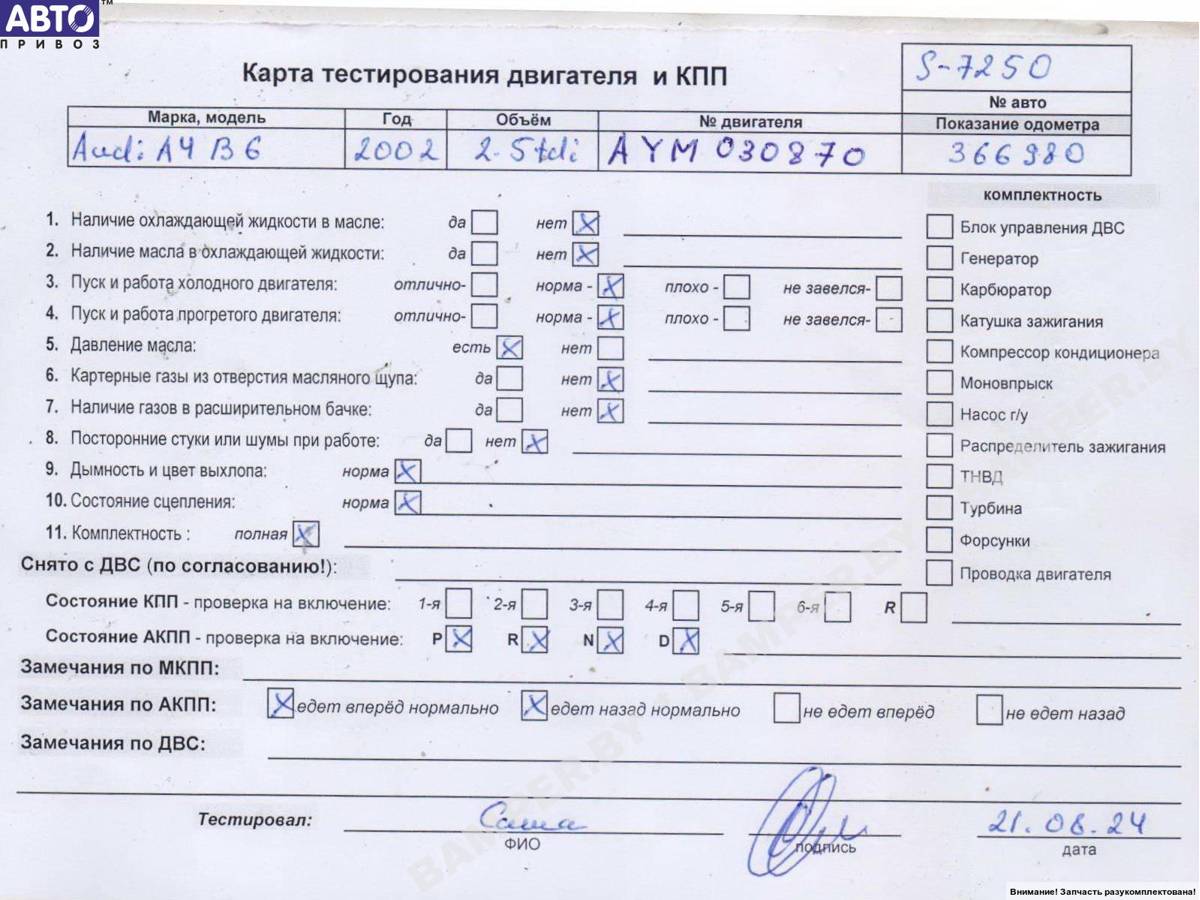 АВТО™
ПРИВОЗ
Карта тестирования двигателя и КПП
S-7250
№ авто
Марка, модель Год Объём № двигателя Показание одометра
Audi A4 B6 2002 2.5tdi AYM 030870 366980
комплектность
1. Наличие охлаждающей жидкости в масле: да нет X
Блок управления ДВС
2. Наличие масла в охлаждающей жидкости: да нет X
Генератор
3. Пуск и работа холодного двигателя: отлично- норма - X плохо - не завелся-
Карбюратор
4. Пуск и работа прогретого двигателя: отлично- норма - X плохо - не завелся-
Катушка зажигания
5. Давление масла: есть X нет
Компрессор кондиционера
6. Картерные газы из отверстия масляного щупа: да нет X
Моновпрыск
7. Наличие газов в расширительном бачке: да нет X
Насос г/у
8. Посторонние стуки или шумы при работе: да нет X
Распределитель зажигания
9. Дымность и цвет выхлопа: норма X
ТНВД
10. Состояние сцепления: норма X
Турбина
11. Комплектность : полная X
Форсунки
Снято с ДВС (по согласованию!):
Проводка двигателя
Состояние КПП - проверка на включение: 1-я 2-я 3-я 4-я 5-я 6-я R
Состояние АКПП - проверка на включение: P X R X N X D X
Замечания по МКПП:
Замечания по АКПП: X едет вперёд нормально X едет назад нормально не едет вперёд не едет назад
Замечания по ДВС:
Тестировал: Саша 21.08.24
ФИО подпись дата
BAMPER.BY BAMPER.BY BAMPER.BY BAMPER.BY
Внимание! Запчасть разукомплектована!